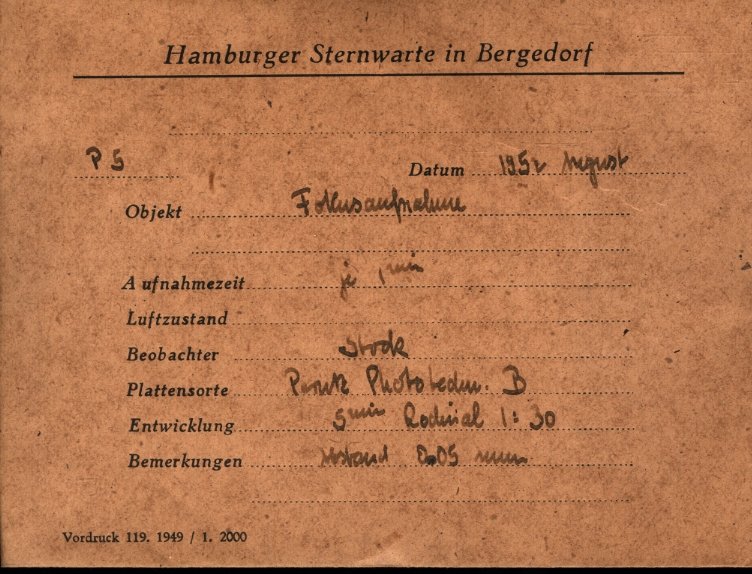 Hamburger Sternwarte in Bergedorf
P 5 Datum 1952 August
Objekt Fokusaufnahme
Aufnahmezeit je 1 min
Luftzustand
Beobachter Stock
Plattensorte Perutz Phototechn. B
Entwicklung 5 min Rodinal 1:30
Bemerkungen Abstand 0.05 mm
Vordruck 119. 1949 / 1. 2000